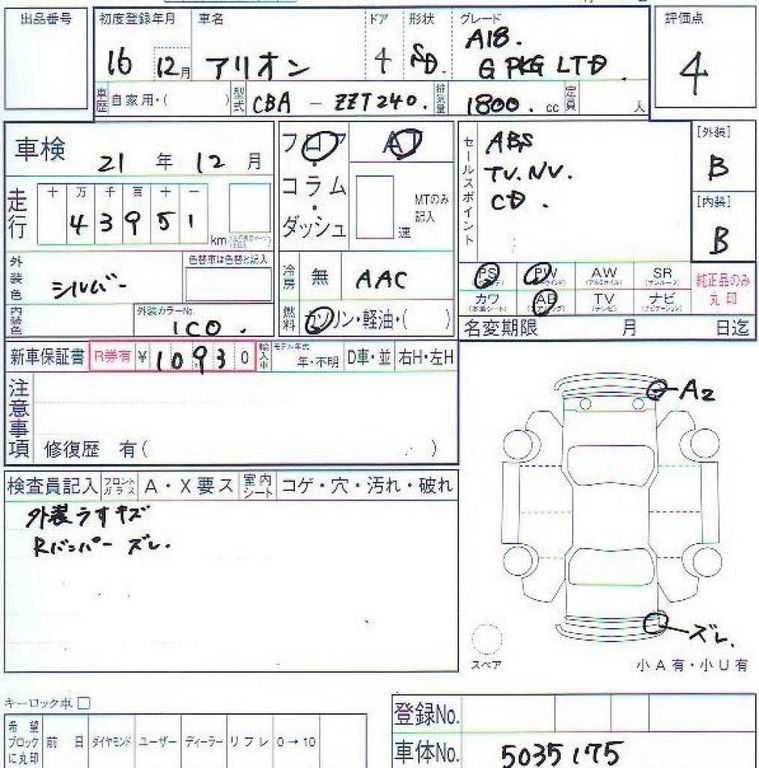 出品番号
初度登録年月 車名 ドア 形状 グレード
16 12月 アリオン 4 SD. A18.
G PKG LTD.
評価点
4
車歴 自家用・( ) 型式 CBA - ZZT240. 排気量 1800. cc 定員 人
車検 21 年 12 月
フロア AT
コラム
・
ダッシュ
MTのみ
記入
速
セールスポイント
ABS
TV. NV.
CD.
[外装]
B
[内装]
B
走行 十 万 千 百 十 一
4 3 9 5 1 km
外装色 シルバー 色替車は色替と記入
内装色 外装カラーNo.
1C0.
冷房 無 AAC
燃料 ガソリン・軽油・( )
PS PW AW SR
カワ AB TV ナビ
純正品のみ
丸印
名変期限 月 日迄
新車保証書 R券有 ¥ 10930 輸入車 モデル年式 年・不明 D車・並 右H・左H
注意事項
修復歴 有( )
検査員記入 フロントガラス A・X要ス 室内シート コゲ・穴・汚れ・破れ
外装うすキズ
Rバンパー ズレ.
A2
ズレ.
スペア
小A有・小U有
キーロック車
希望
ブロック
に丸印
前 日 ダイヤモンド ユーザー ディーラー リフレ 0→10
登録No.
車体No. 5035175